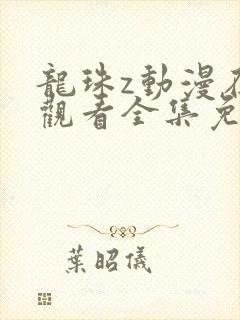 龍珠z動漫在
觀看全集免
葉昭儀